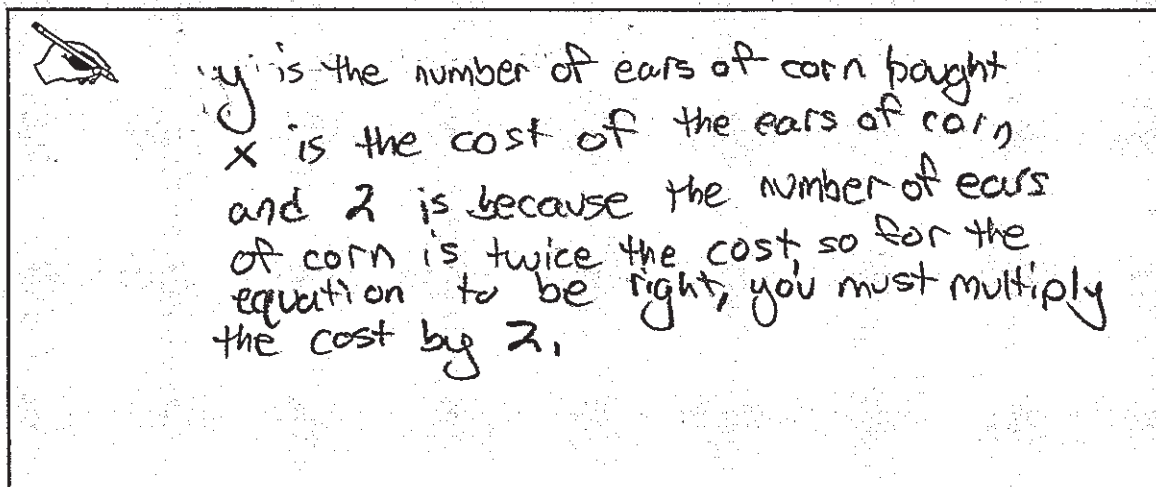 y is the number of ears of corn bought
x is the cost of the ears of corn,
and 2 is because the number of ears
of corn is twice the cost, so for the
equation to be right, you must multiply
the cost by 2.